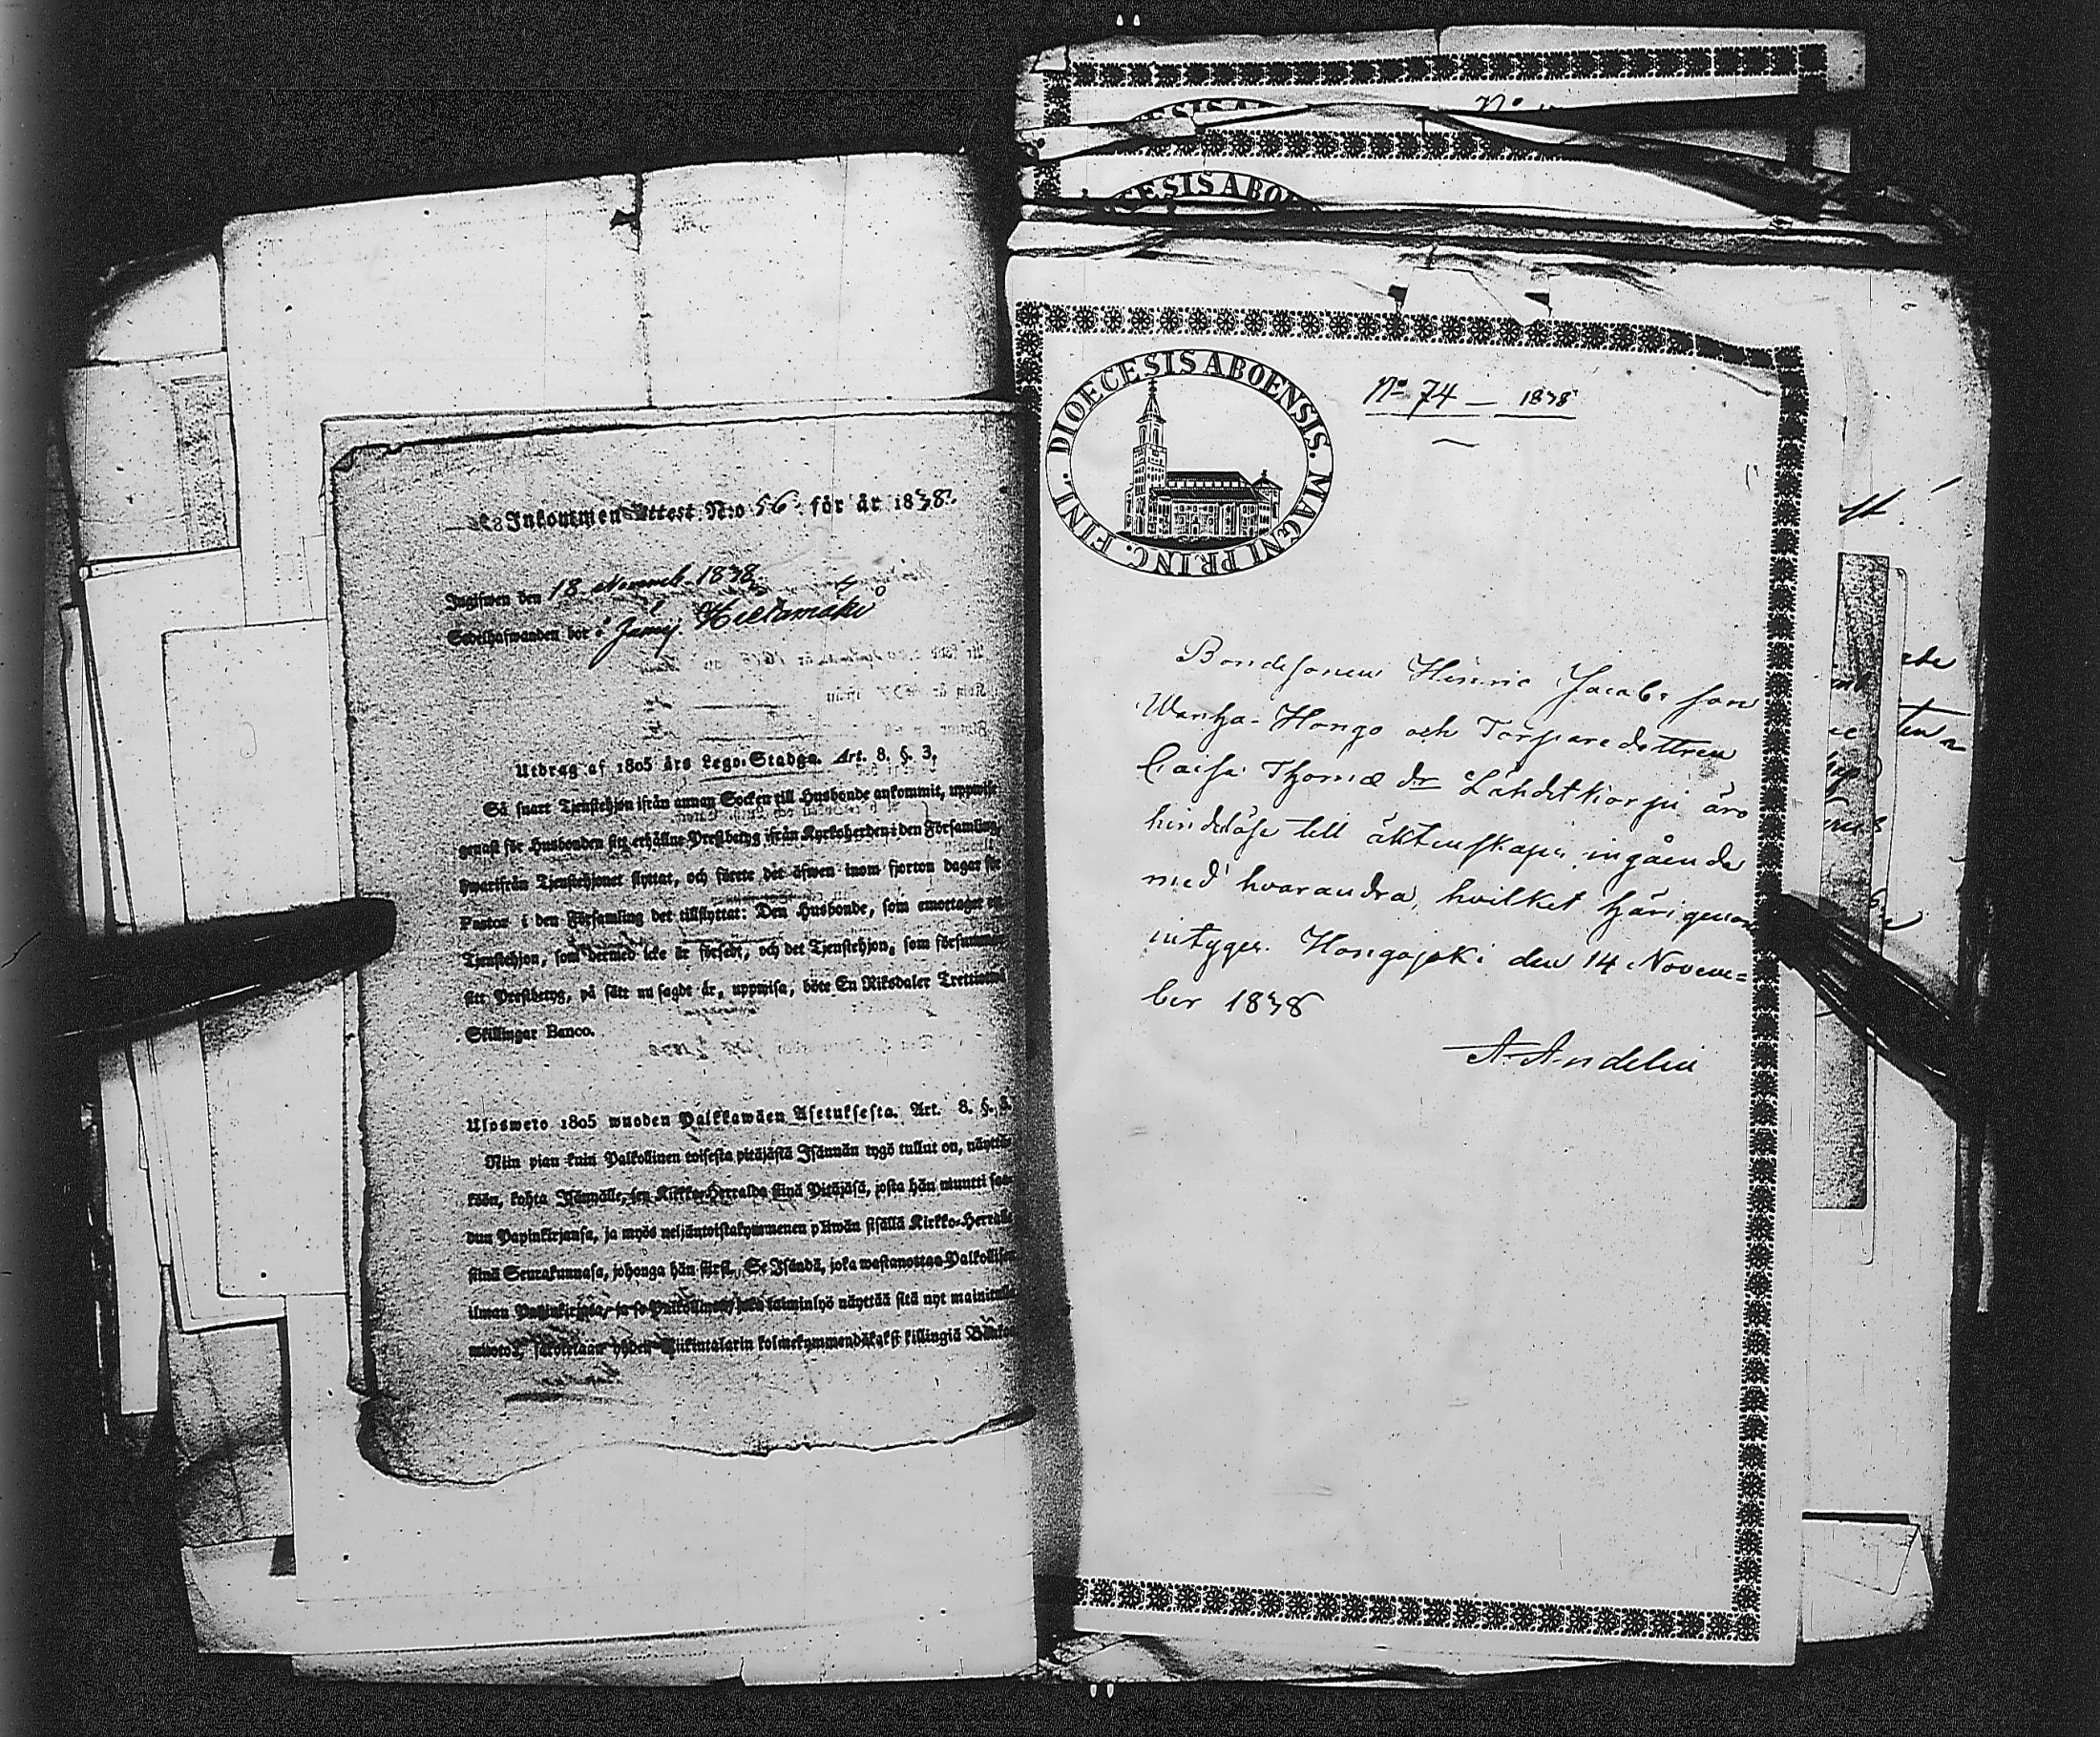 Inkommen Attest N:o 56 för år 1838.
Ingifwen den 18 Novemb. 1838
Sedelhafwanden bor i Jämij. Hietamäki
Utdrag af 1805 års Lego-Stadga. Art. 8. §. 3.
Så snart Tjenstehjon ifrån annan Socken till Husbonde ankommit, uppwise
genast för Husbonden sitt erhållne Prestbetyg ifrån Kyrkoherden i den Församling,
hwarifrån Tjenstehjonet flyttat, och förete det äfwen inom fjorton dagar för
Pastor i den Församling det tillflyttat: Den Husbonde, som emottager
Tjenstehjon, som dermed icke är försedt, och det Tjenstehjon, som försummar
sitt Prestbetyg, på sätt nu sagdt är, uppwisa, böte En Riksdaler Trettiotwå
Skillingar Banco.
Ulosweto 1805 wuoden Palkkawäen Asetuksesta. Art. 8. §. 3.
Niin pian kuin Palkollinen toisesta pitäjästä Isännän tygö tullut on, näyttä-
köön, kohta Isännälle, sen Kirkko-Herralda siinä Pitäjäsä, josta hän muutti saa-
dun Papinkirjansa, ja myös neljäntoistakymmenen päiwän sisällä Kirkko-Herralle
siinä Seurakunnasa, johonga hän siirsi. Se Isändä, joka wastanottaa Palkollisen
ilman Papinkirjata, ja se Palkollinen, joka laiminlyö näyttää sitä nyt mainitulla
muotoa, sakotetaan yhden Riikintalarin kolmekymmendäkaksi killingiä Banko
DIOECESIS ABOENSIS. MAGNI PRINC. FINL.
No 74 — 1838
Bondesonen Henric Jacobs son
Wanha-Hongo och Torparedottren
Caisa Thomæ dr Lähdekorpi äro
hinderlöse till äktenskaps ingående
med hvarandra, hvilket härigenom
intygas. Hongojoki den 14 Novem=
ber 1838
A. Andelin